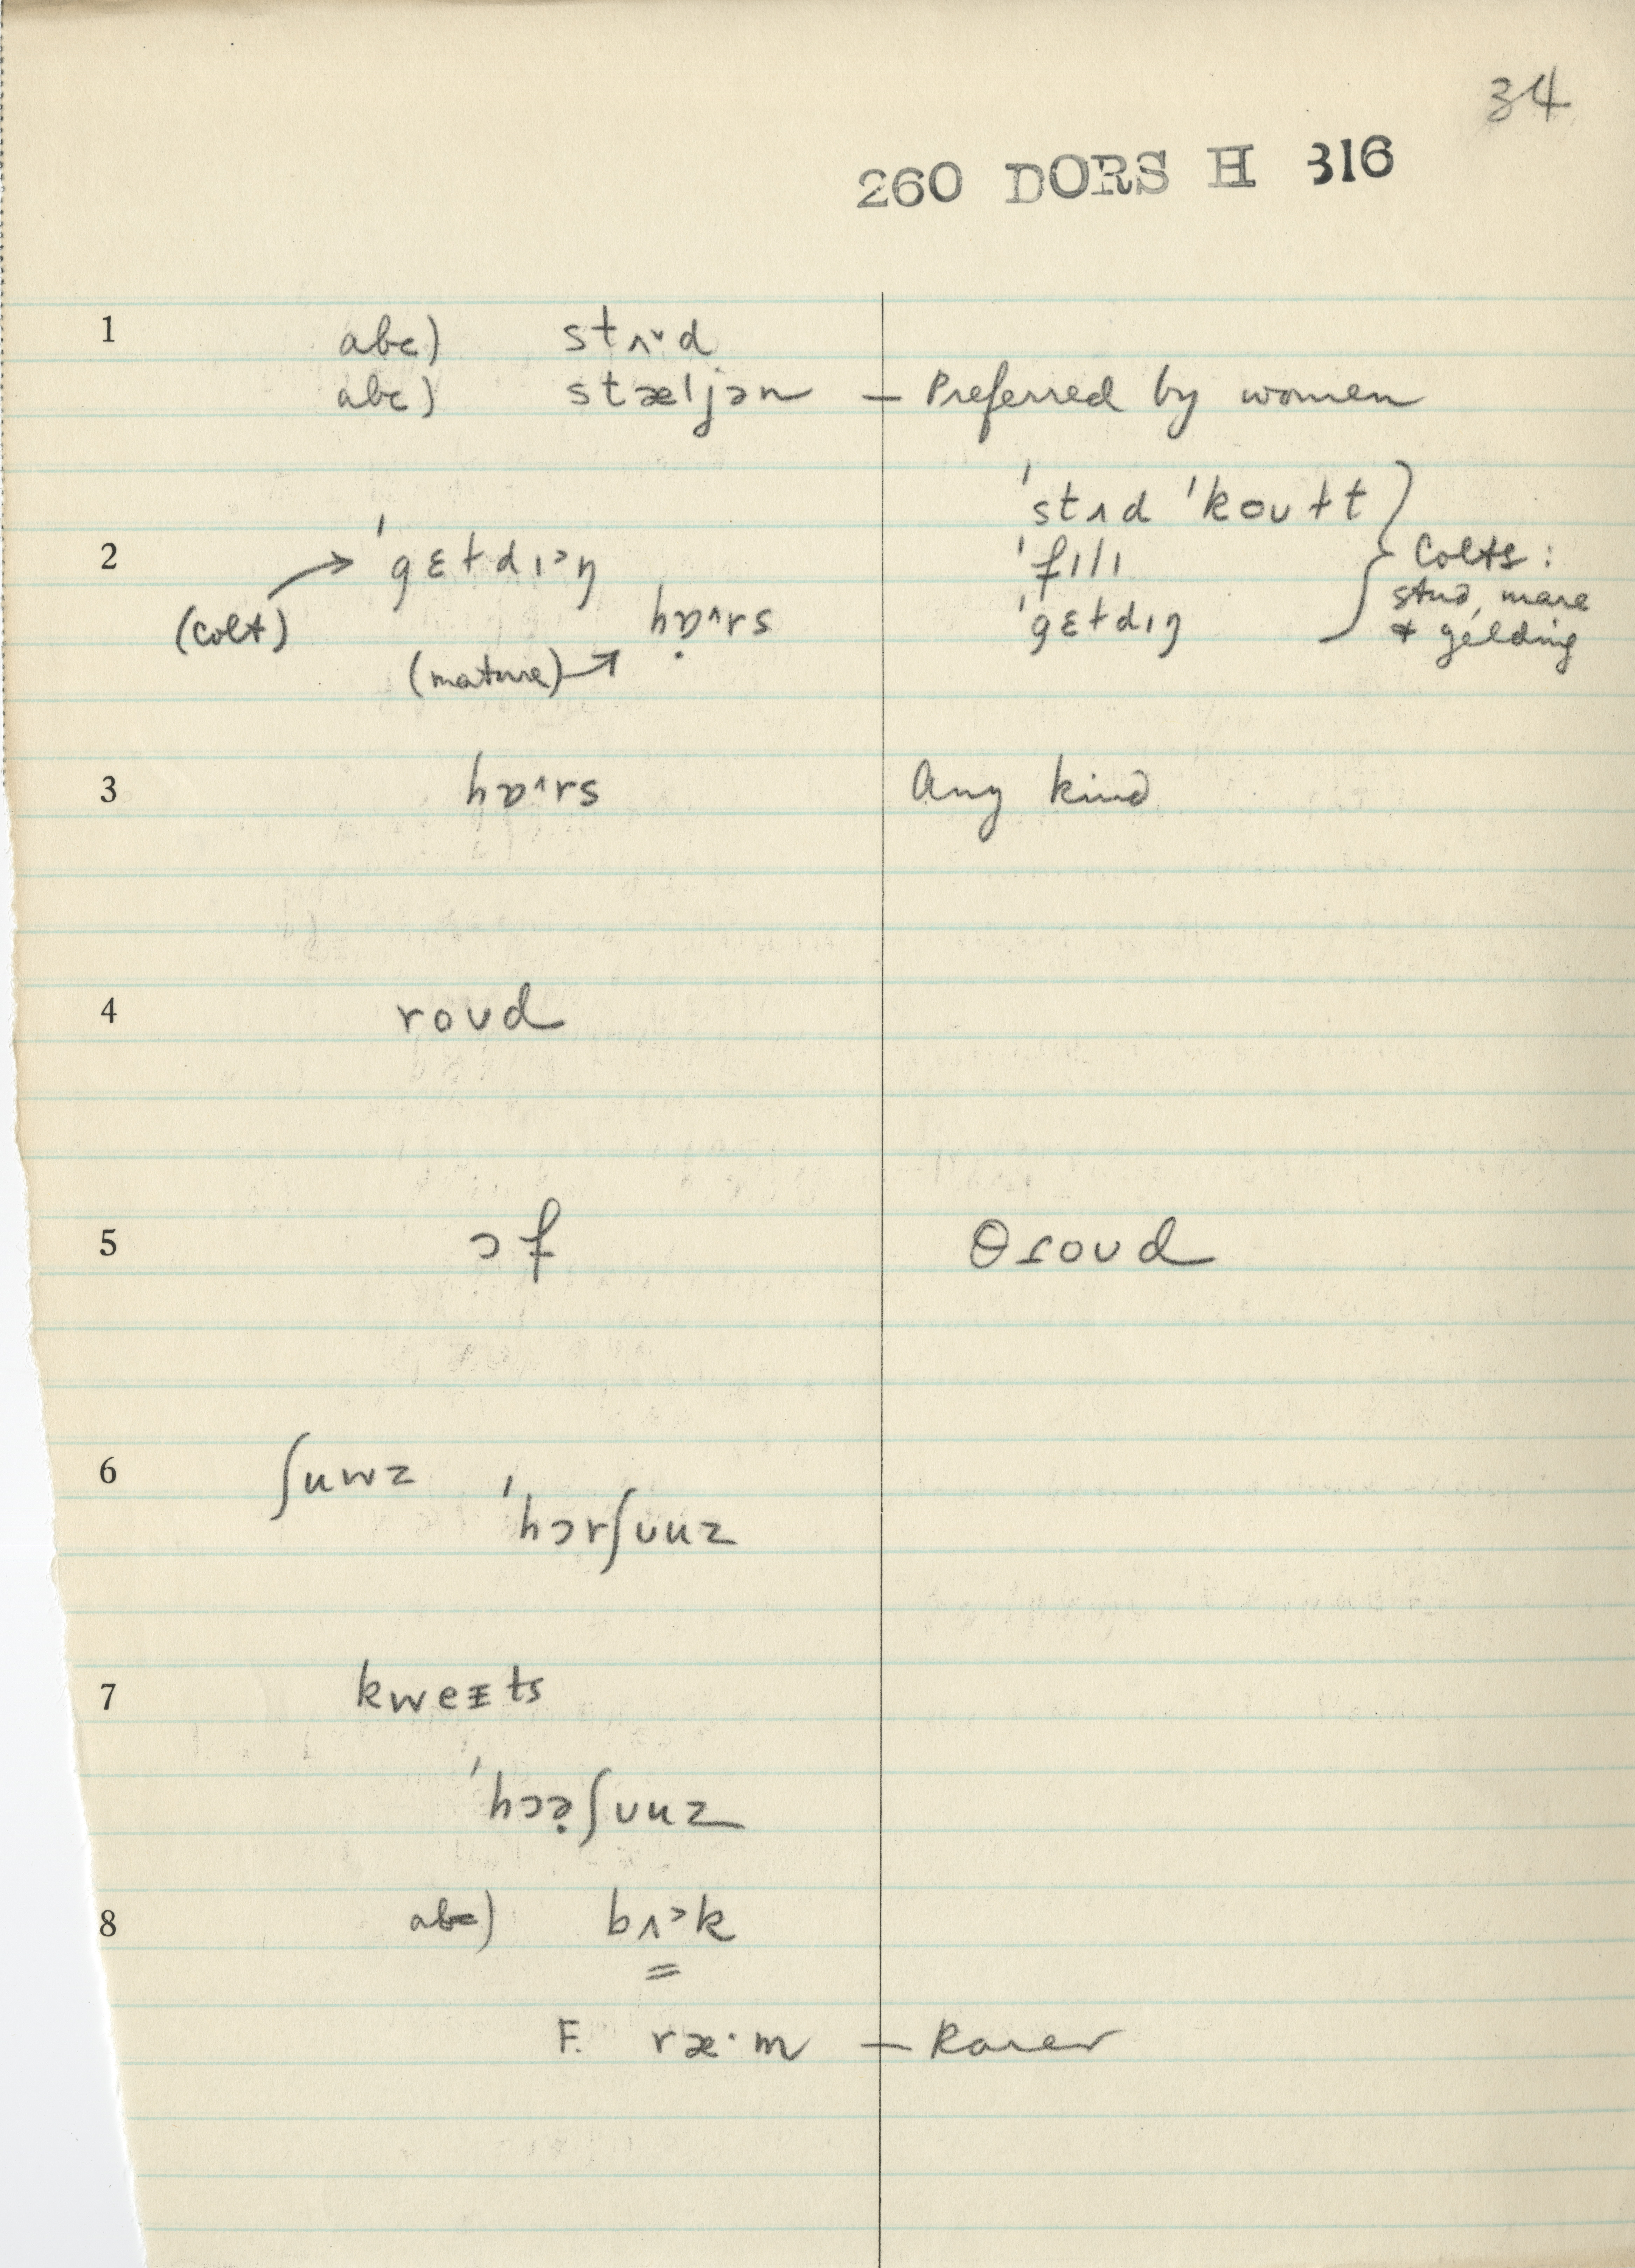 34
260 DORS H 316
1 abc) stʌ˅d
abc) stæljən — Preferred by women
'stʌd 'koʊɫt
2 'gɛɫdɪ˃ŋ 'fɪlɪ Colts:
(colt) hɒ˄rs 'gɛɫdɪŋ stud, mare
(mature) & gelding
3 hɒ˄rs Any kind
4 roʊd
5 ɔf θroʊd
6 ʃuwz
'hɔrʃʊuz
7 kweɪts
'hɔʃʊuz
8 abc) bʌ˃k
F. ræ·m — Rarer